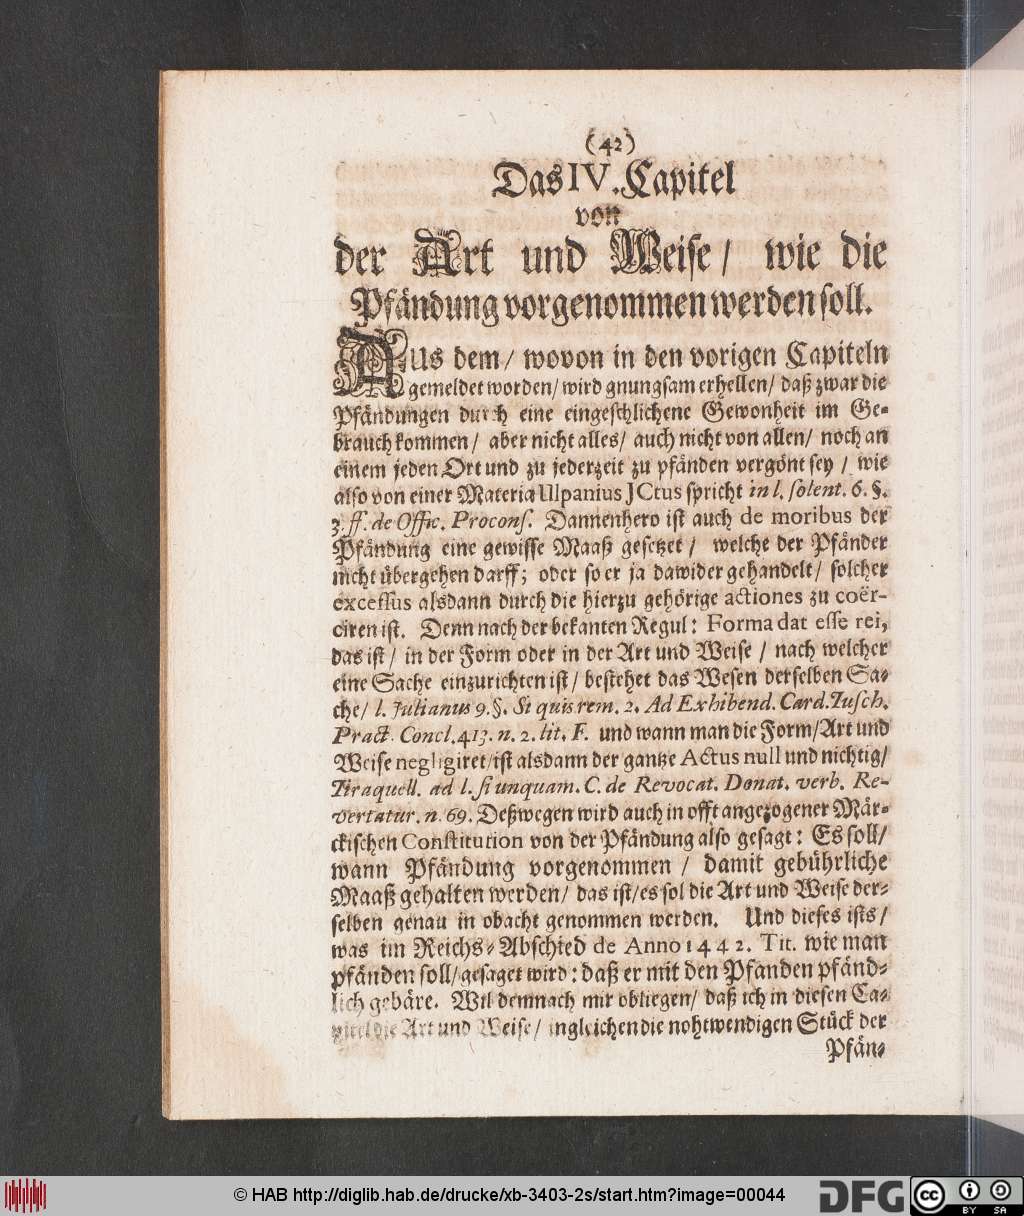 (42)
Das IV. Capitel
von
der Art und Weise/ wie die
Pfändung vorgenommen werden soll.
AUs dem/ wovon in den vorigen Capiteln
gemeldet worden/ wird gnungsam erhellen/ daß zwar die
Pfändungen durch eine eingeschlichene Gewonheit im Ge-
brauch kommen/ aber nicht alles/ auch nicht von allen/ noch an
einem jeden Ort und zu jederzeit zu pfänden vergönt sey/ wie
also von einer Materia Ulpanius JCtus spricht in l. solent. 6. §.
3. ff. de Offic. Procons. Dannenhero ist auch de moribus der
Pfändung eine gewisse Maaß gesetzet/ welche der Pfänder
nicht übergehen darff; oder so er ja dawider gehandelt/ solcher
excessus alsdann durch die hierzu gehörige actiones zu coër-
ciren ist. Denn nach der bekanten Regul: Forma dat esse rei,
das ist/ in der Form oder in der Art und Weise/ nach welcher
eine Sache einzurichten ist/ bestehet das Wesen derselben Sa-
che/ l. Julianus 9. §. Si quis rem. 2. Ad Exhibend. Card. Tusch.
Pract. Concl. 413. n. 2. lit. F. und wann man die Form/ Art und
Weise negligiret/ ist alsdann der gantze Actus null und nichtig/
Tiraquell. ad l. si unquam. C. de Revocat. Donat. verb. Re-
vertatur. n. 69. Deßwegen wird auch in offt angezogener Mär-
ckischen Constitution von der Pfändung also gesagt: Es soll/
wann Pfändung vorgenommen/ damit gebührliche
Maaß gehalten werden/ das ist/ es sol die Art und Weise der-
selben genau in obacht genommen werden. Und dieses ists/
was im Reichs-Abschied de Anno 1442. Tit. wie man
pfänden soll/ gesaget wird: daß er mit den Pfanden pfänd-
lich gebäre. Wil demnach mir obliegen/ daß ich in diesen Ca-
pitel die Art und Weise/ ingleichen die nohtwendigen Stück der
Pfän-
© HAB http://diglib.hab.de/drucke/xb-3403-2s/start.htm?image=00044
DFG
cc
BY SA